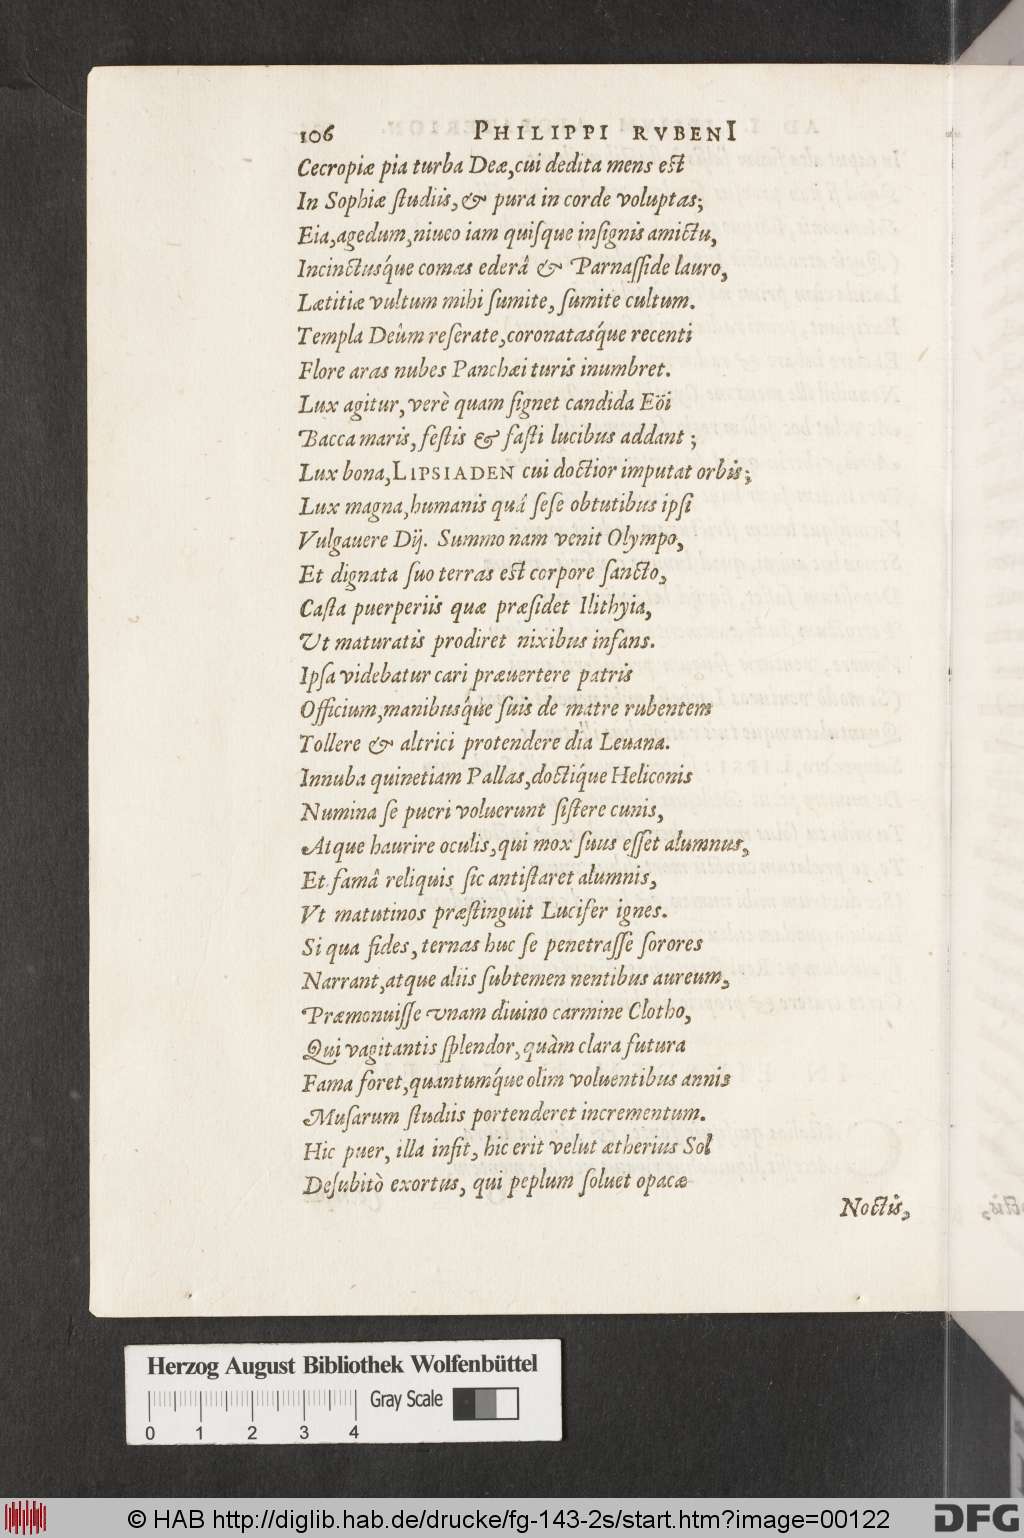 106 PHILIPPI RVBENI
Cecropiæ pia turba Deæ, cui dedita mens est
In Sophiæ ſtudiis, & pura in corde voluptas;
Eia, agedum, niueo iam quiſque inſignis amictu,
Incinctusq́ue comas ederâ & Parnaſſide lauro,
Lætitiæ vultum mihi ſumite, ſumite cultum.
Templa Deûm reſerate, coronatasq́ue recenti
Flore aras nubes Panchæi turis inumbret.
Lux agitur, verè quam ſignet candida Eöi
Bacca maris, feſtis & faſti lucibus addant ;
Lux bona, LIPSIADEN cui doctior imputat orbis;
Lux magna, humanis quâ ſeſe obtutibus ipſi
Vulgauere Dij. Summo nam venit Olympo,
Et dignata ſuo terras est corpore ſancto,
Caſta puerperiis quæ præſidet Ilithyia,
Ut maturatis prodiret nixibus infans.
Ipſa videbatur cari præuertere patris
Officium, manibusq́ue ſuis de matre rubentem
Tollere & altrici protendere dia Leuana.
Innuba quinetiam Pallas, doctiq́ue Heliconis
Numina ſe pueri voluerunt ſiſtere cunis,
Atque haurire oculis, qui mox ſuus eſſet alumnus,
Et famâ reliquis ſic antiſtaret alumnis,
Vt matutinos præſtinguit Lucifer ignes.
Si qua fides, ternas huc ſe penetraſſe ſorores
Narrant, atque aliis ſubtemen nentibus aureum,
Præmonuiſſe vnam diuino carmine Clotho,
Qui vagitantis ſplendor, quàm clara futura
Fama foret, quantumq́ue olim voluentibus annis
Muſarum ſtudiis portenderet incrementum.
Hic puer, illa infit, hic erit velut ætherius Sol
Deſubitò exortus, qui peplum ſoluet opacæ
Noctis,
Herzog August Bibliothek Wolfenbüttel
Gray Scale
0 1 2 3 4
© HAB http://diglib.hab.de/drucke/fg-143-2s/start.htm?image=00122
DFG